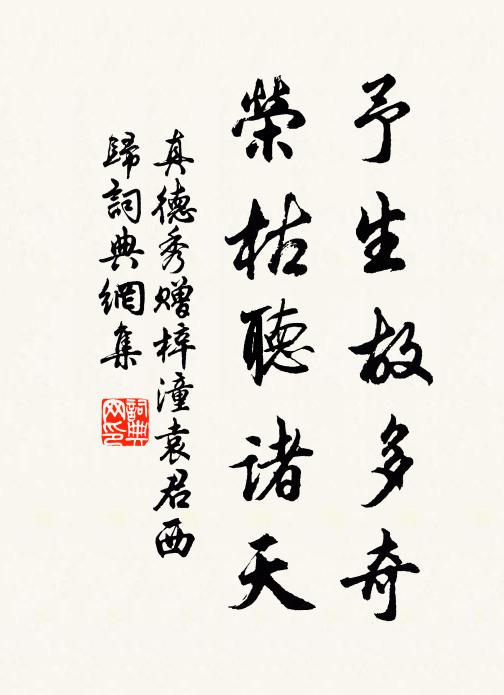 予生故多奇
榮枯聽諸天
真德秀贈梓潼袁君西
歸詞典網集
詞典
网印